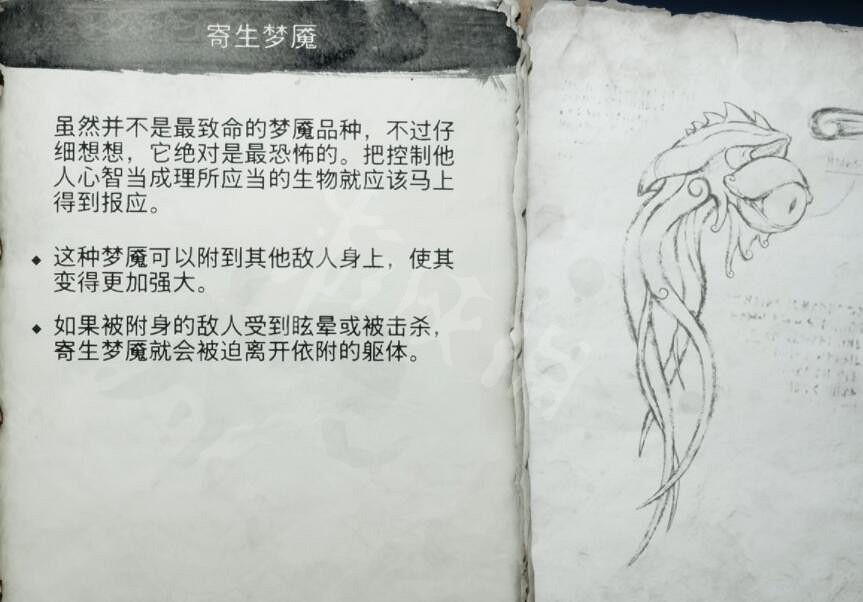 寄生梦魇
虽然并不是最致命的梦魇品种，不过仔
细想想，它绝对是最恐怖的。把控制他
人心智当成理所应当的生物就应该马上
得到报应。
◆ 这种梦魇可以附到其他敌人身上，使其
变得更加强大。
◆ 如果被附身的敌人受到眩晕或被击杀，
寄生梦魇就会被迫离开依附的躯体。